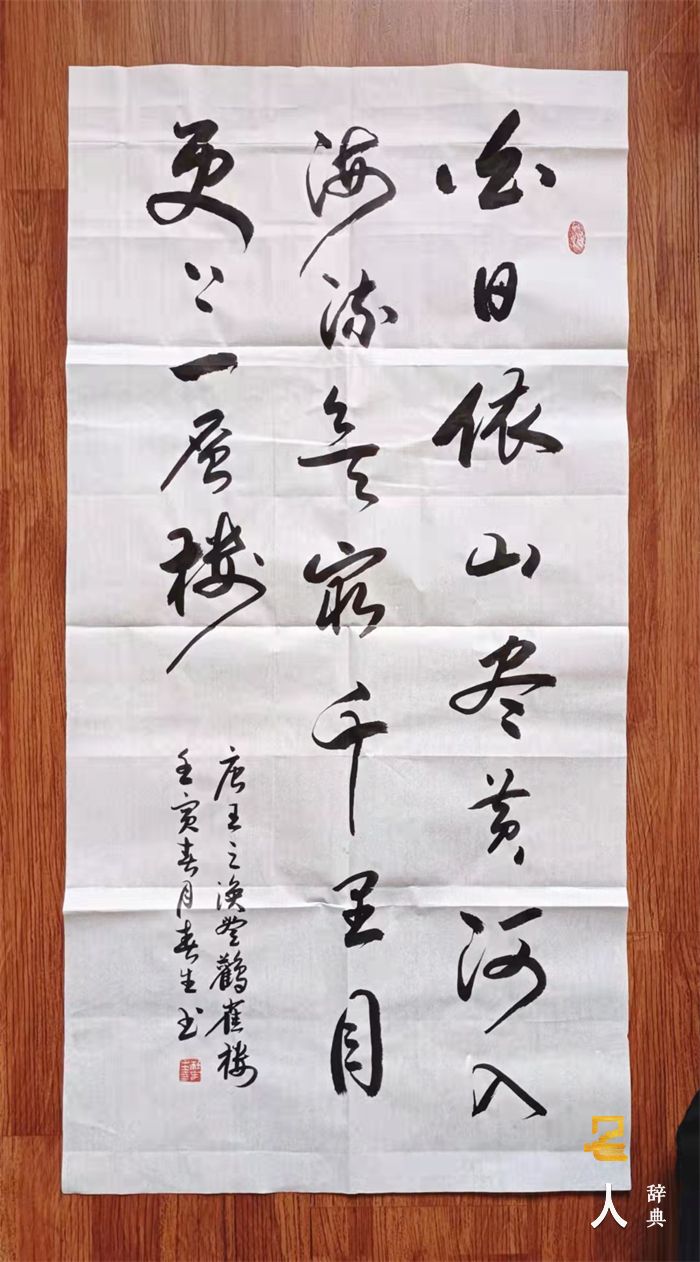 白日依山尽黄河入
海流欲穷千里目
更上一层楼
唐王之涣登鹳雀楼
壬寅春月春生书
名人
辞典